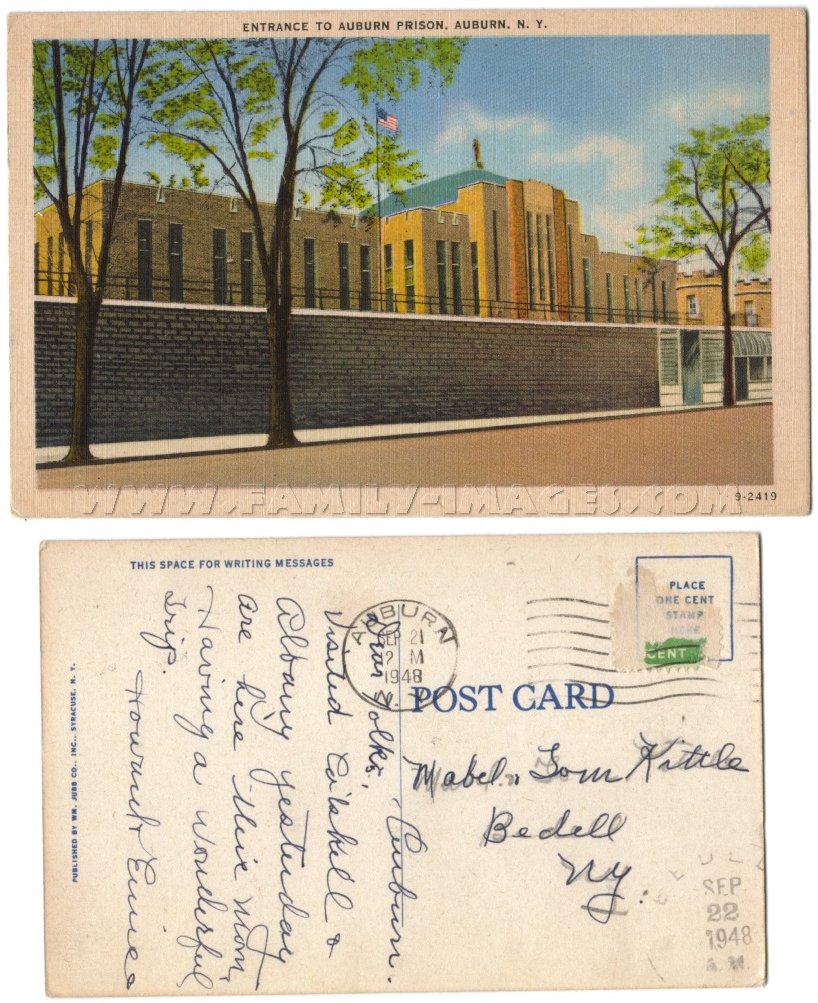 ENTRANCE TO AUBURN PRISON, AUBURN, N. Y.
WWW.FAMILY-IMAGES.COM
9-2419
THIS SPACE FOR WRITING MESSAGES
PLACE
ONE CENT
STAMP
HERE
CENT
AUBURN
SEP 21
2 M
1948
N.Y.
POST CARD
Auburn.
Dear Folks,
Visited Catskill &
Albany yesterday
are here this morn,
Having a wonderful
trip.
Howard &
Mabel & Tom Kittle
Bedell
NY.
SEP
22
1948
A.M.
PUBLISHED BY WM. JUBB CO., INC., SYRACUSE, N. Y.